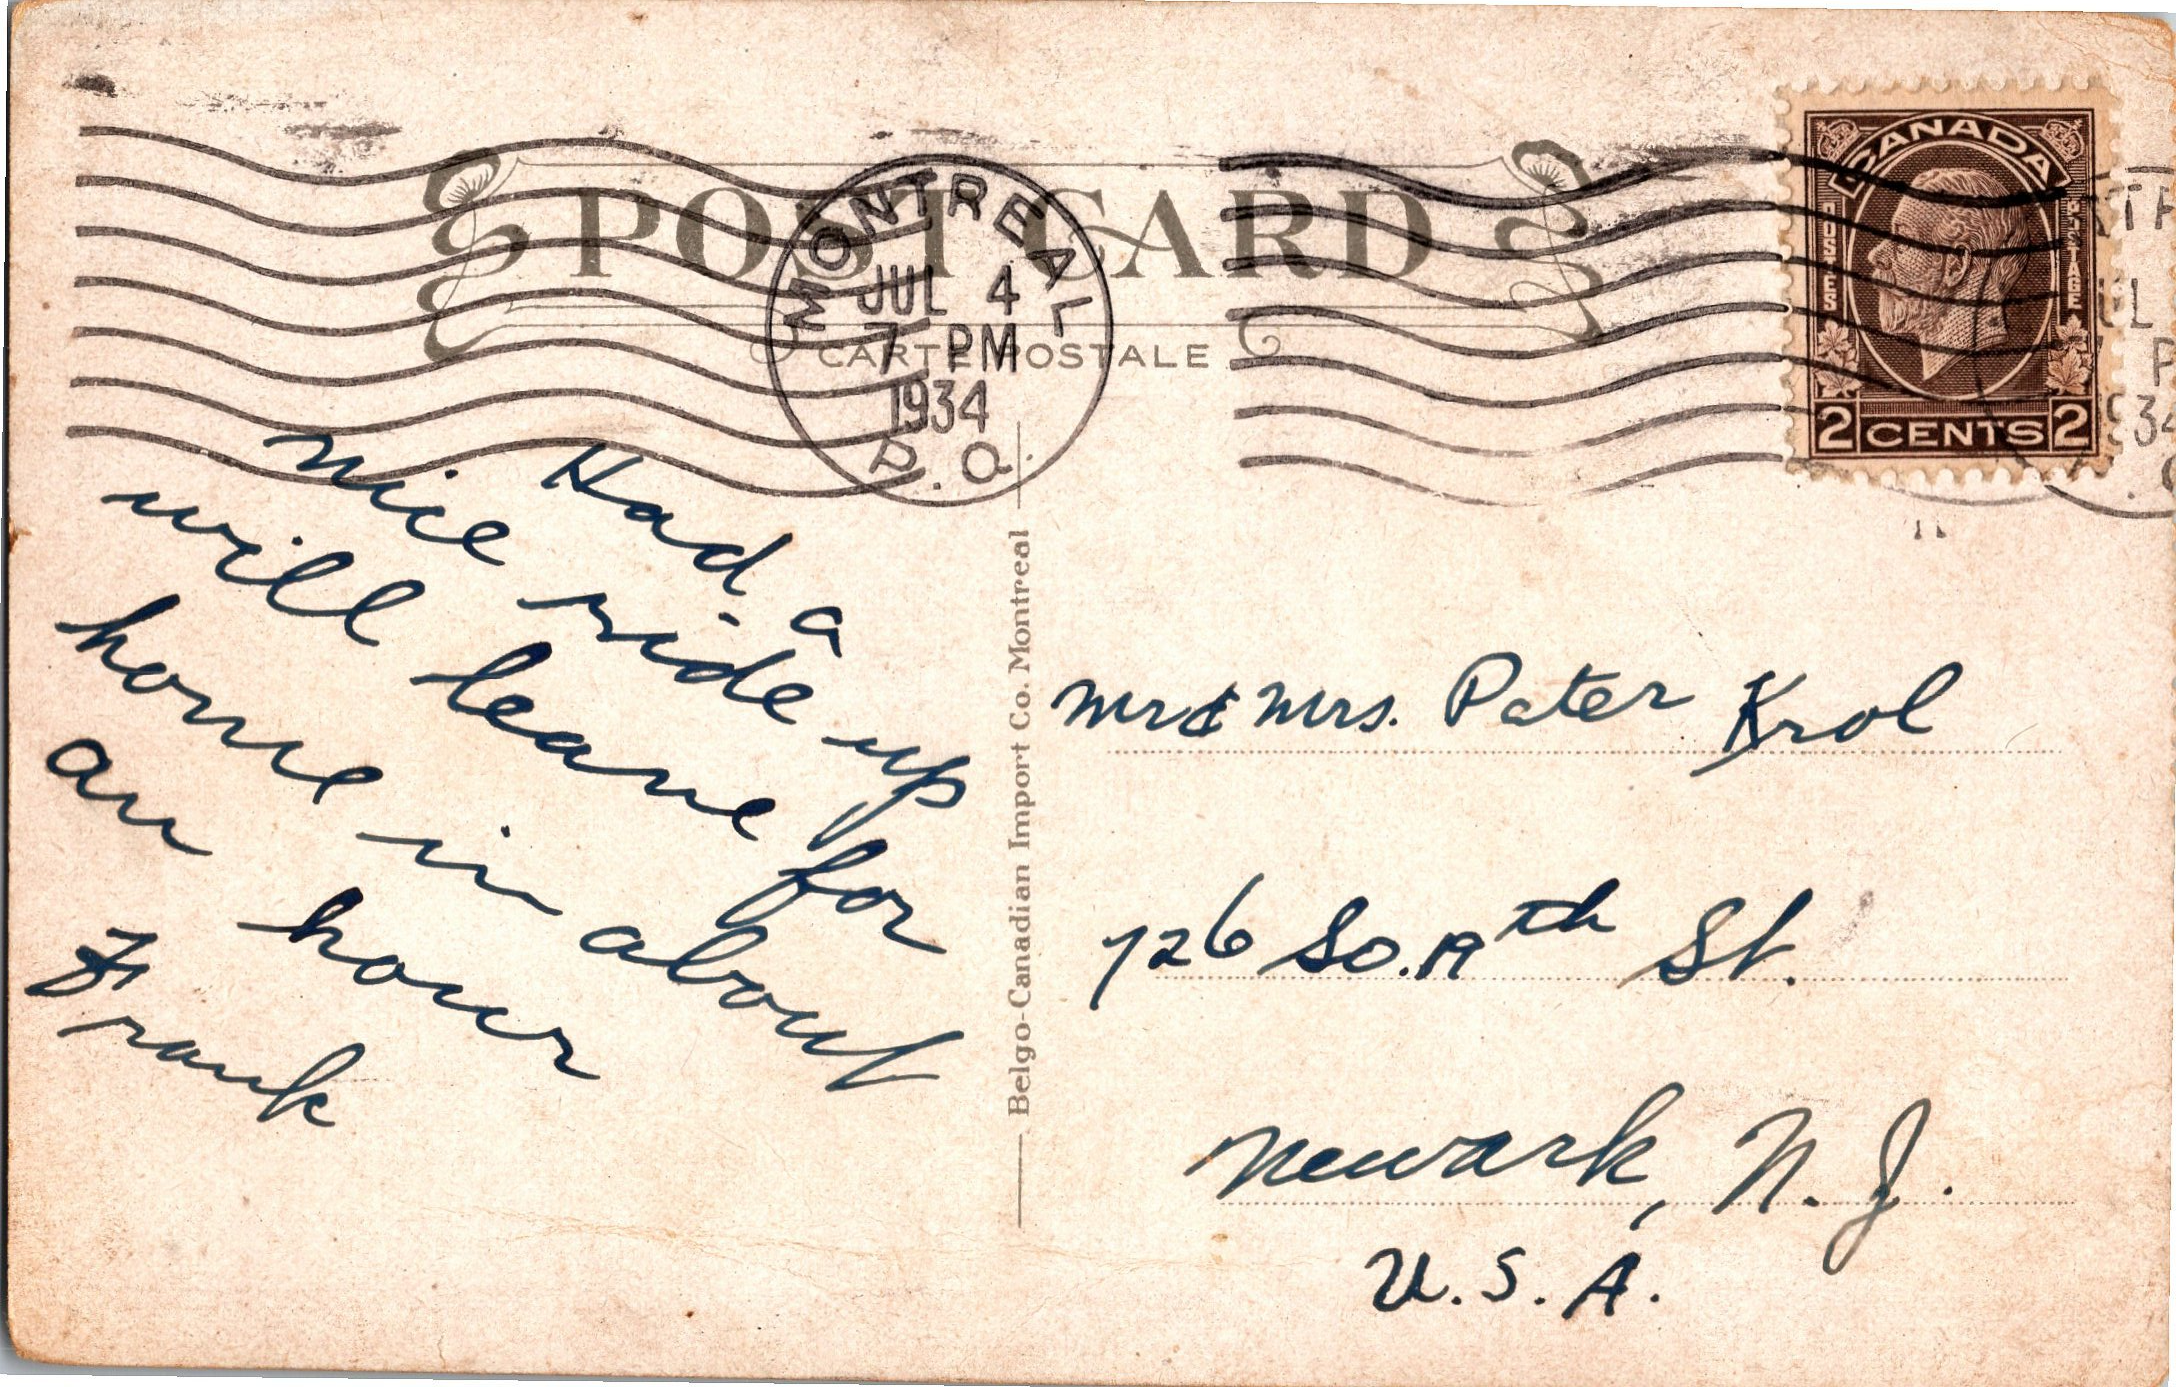 POST CARD
CARTE POSTALE
MONTREAL
JUL 4
7 PM
1934
P.Q.
CANADA
POSTES
POSTAGE
2 CENTS 2
Had a
nice ride up
will leave for
home in about
an hour
Frank
Belgo-Canadian Import Co. Montreal
Mr & Mrs. Pater Krol
726 So. 19th St.
Newark, N. J.
U. S. A.